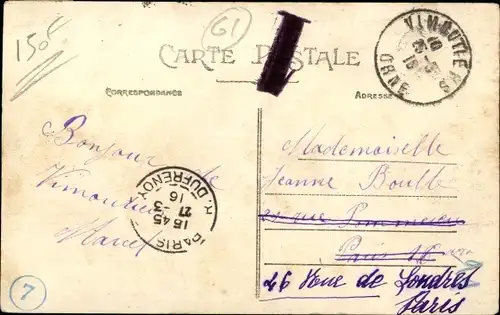 150
61
CARTE POSTALE
VIMOUTIERS
ORNE
CORRESPONDANCE
ADRESSE
Bonjour de
Vimoutiers
Marcel
PARIS
R. DUFRENOY
15 45
27 - 3
16
Mademoiselle
Jeanne
Paris 16
46 Rue de Londres
Paris
7